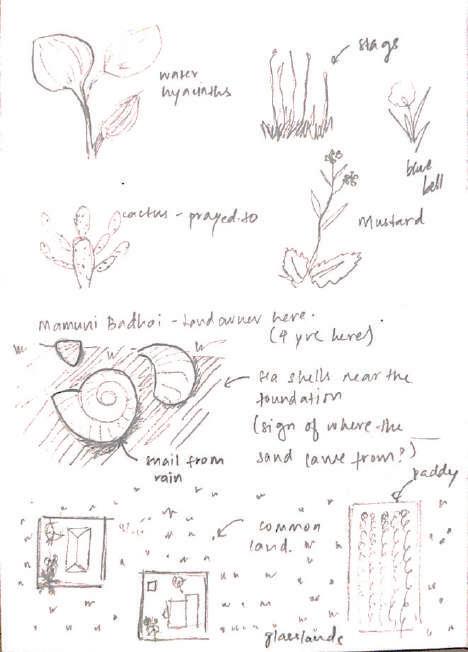 water
hyacinths
stags
blue
bell
cactus - prayed to
Mustard
Mamuni Badhoi - land owner here.
(4 yrs here)
sea shells near the
foundation
(sign of where the
sand came from?)
snail from
rain
paddy
common
land.
glasslands